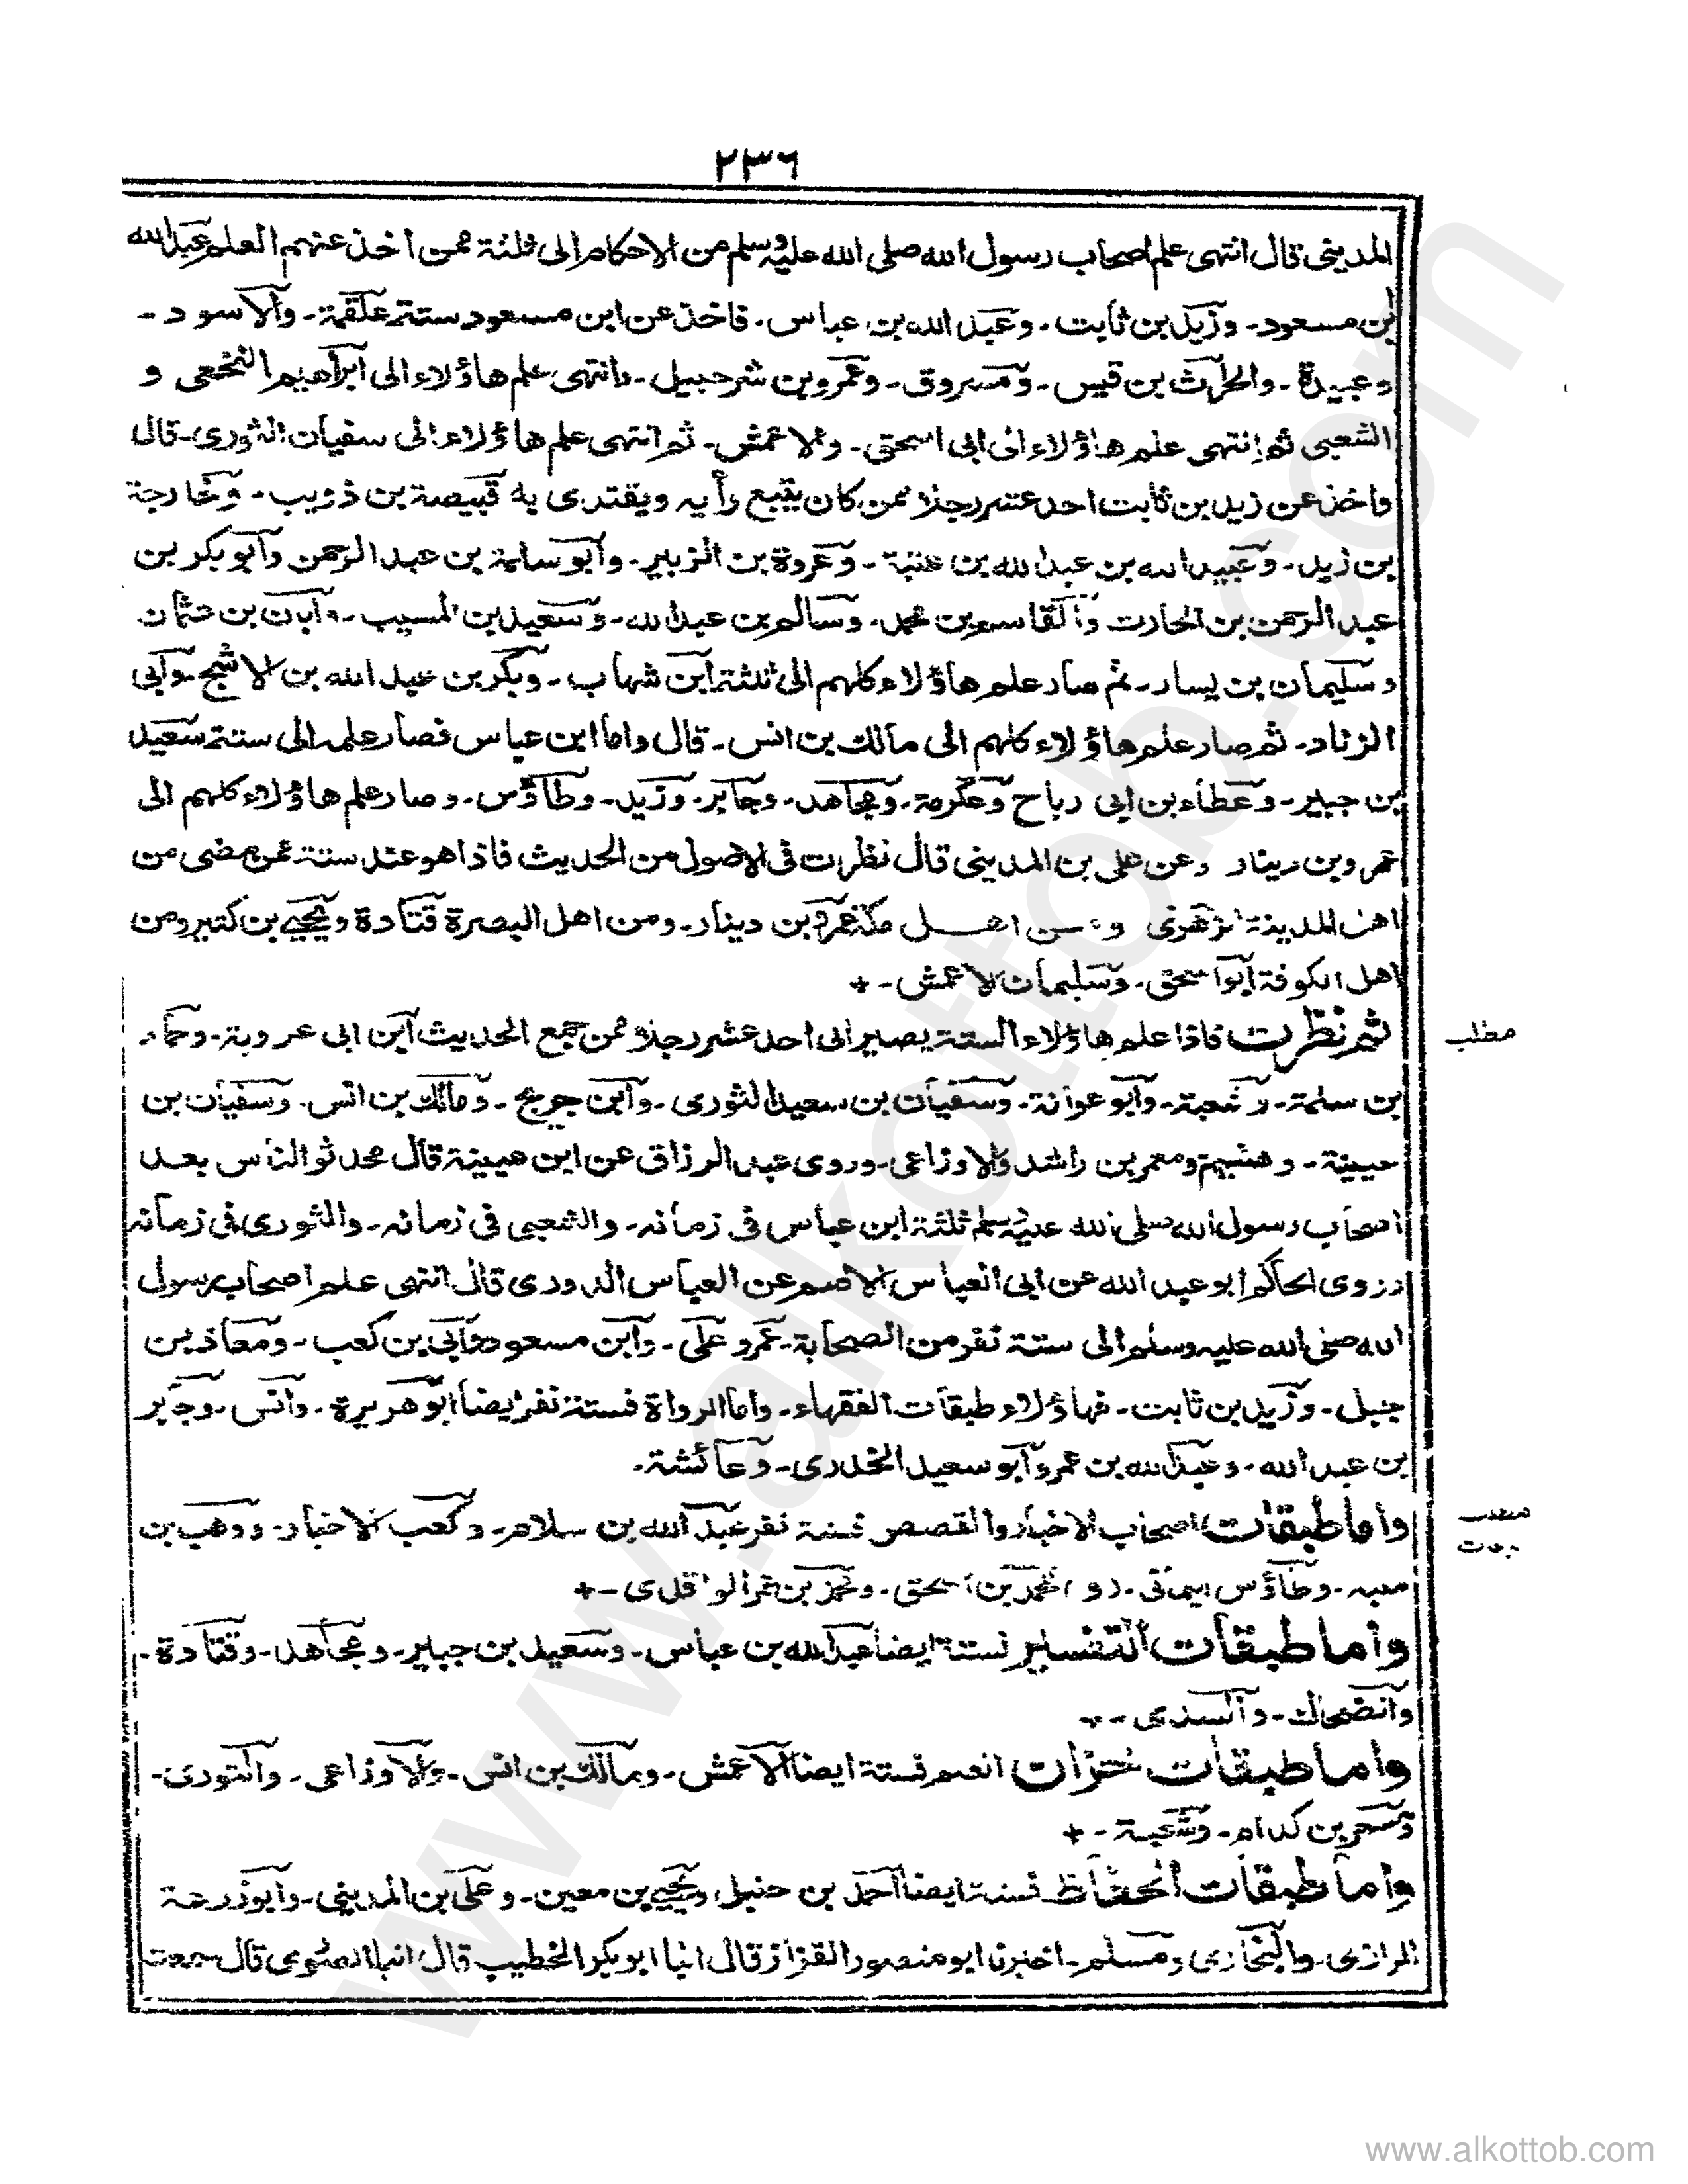 ٢٣٦
المديني قال انتهى علم اصحاب رسول الله صلى الله عليه وسلم من الاحكام الى ثلثة ممن اخذ عنهم العلم عبد الله
بن مسعود - وزيد بن ثابت - وعبد الله بن عباس - فاخذ عن ابن مسعود ستة علقمة - والاسود -
وعبيدة - والحرث بن قيس - ومسروق - وعمرو بن شرحبيل - وانتهى علم هاؤلاء الى ابراهيم النخعي و
الشعبي ثم انتهى علم هاؤلاء الى ابي اسحق - والاعمش - ثم انتهى علم هاؤلاء الى سفيان الثوري - قال
واخذ عن زيد بن ثابت احد عشر رجلا ممن كان يتبع رأيه ويقتدى به قبيصة بن ذويب - وخارجة
بن زيد - وعبيد الله بن عبد الله بن عتبة - وعروة بن الزبير - وابو سلمة بن عبد الرحمن وابو بكر بن
عبد الرحمن بن الحارث والقاسم بن محمد - وسالم بن عبد الله - وسعيد بن المسيب - وابان بن عثمان
وسليمان بن يسار - ثم صار علم هاؤلاء كلهم الى ثلثة ابن شهاب - وبكر بن عبد الله بن الاشج - وابي
الزناد - ثم صار علم هاؤلاء كلهم الى مالك بن انس - قال واما ابن عباس فصار علمه الى ستة سعيد
بن جبير - وعطاء بن ابي رباح وعكرمة - ومجاهد - وجابر - وزيد - وطاؤس - وصار علم هاؤلاء كلهم الى
عمرو بن دينار وعن علي بن المديني قال نظرت في الاصول من الحديث فاذا هو عند ستة ممن مضى من
اهل المدينة الزهري ومن اهل مكة عمرو بن دينار - ومن اهل البصرة قتادة ويحيى بن كثير ومن
اهل الكوفة ابو اسحق - وسليمان الاعمش - +
مطلب
ثم نظرت فاذا علم هاؤلاء الستة يصير الى احد عشر رجلا ممن جمع الحديث ابن ابي عروبة - وحماد
بن سلمة - وشعبة - وابو عوانة - وسفيان بن سعيد الثوري - وابن جريج - ومالك بن انس - وسفيان بن
عيينة - وهشيم ومعمر بن راشد والاوزاعي - وروى عبد الرزاق عن ابن عيينة قال محدثوا الناس بعد
اصحاب رسول الله صلى الله عليه وسلم ثلثة ابن عباس في زمانه - والشعبي في زمانه - والثوري في زمانه
وروى الحاكم ابو عبد الله عن ابي العباس الاصم عن العباس الدوري قال انتهى علم اصحاب رسول
الله صلى الله عليه وسلم الى ستة نفر من الصحابة - عمر وعلي - وابن مسعود وابي بن كعب - ومعاذ بن
جبل - وزيد بن ثابت - فهاؤلاء طبقات الفقهاء - واما الرواة فستة نفر ايضا ابو هريرة - وانس - وجابر
بن عبد الله - وعبد الله بن عمر وابو سعيد الخدري - وعائشة -
واما طبقات اصحاب الاخبار والقصص فستة نفر عبد الله بن سلام - وكعب الاحبار - ووهب بن
منبه - وطاؤس اليماني - ومحمد بن اسحق - ومحمد بن عمر الواقدي - +
واما طبقات التفسير فستة ايضا عبد الله بن عباس - وسعيد بن جبير - ومجاهد - وقتادة -
والضحاك - والسدي - +
واما طبقات خزان العلم فستة ايضا الاعمش - ومالك بن انس - والاوزاعي - والثوري -
ومسعر بن كدام - وشعبة - +
واما طبقات الحفاظ فستة ايضا احمد بن حنبل ويحيى بن معين - وعلي بن المديني - وابو زرعة
الرازي - والبخاري ومسلم - اخبرنا ابو منصور القزاز قال انبا ابو بكر الخطيب قال انبا الصوري قال سمعت
www.alkottob.com
www.alkottob.com